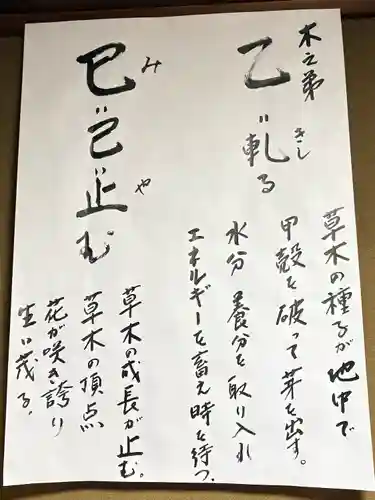 木之弟
乙〃軋る
きし
草木の種子が地中で
甲殻を破って芽を出す。
水分 養分を取り入れ
エネルギーを蓄え時を待つ、
巳〃己〃止む
み
や
草木の成長が止む。
草木の頂点
花が咲き誇り
生い茂る。